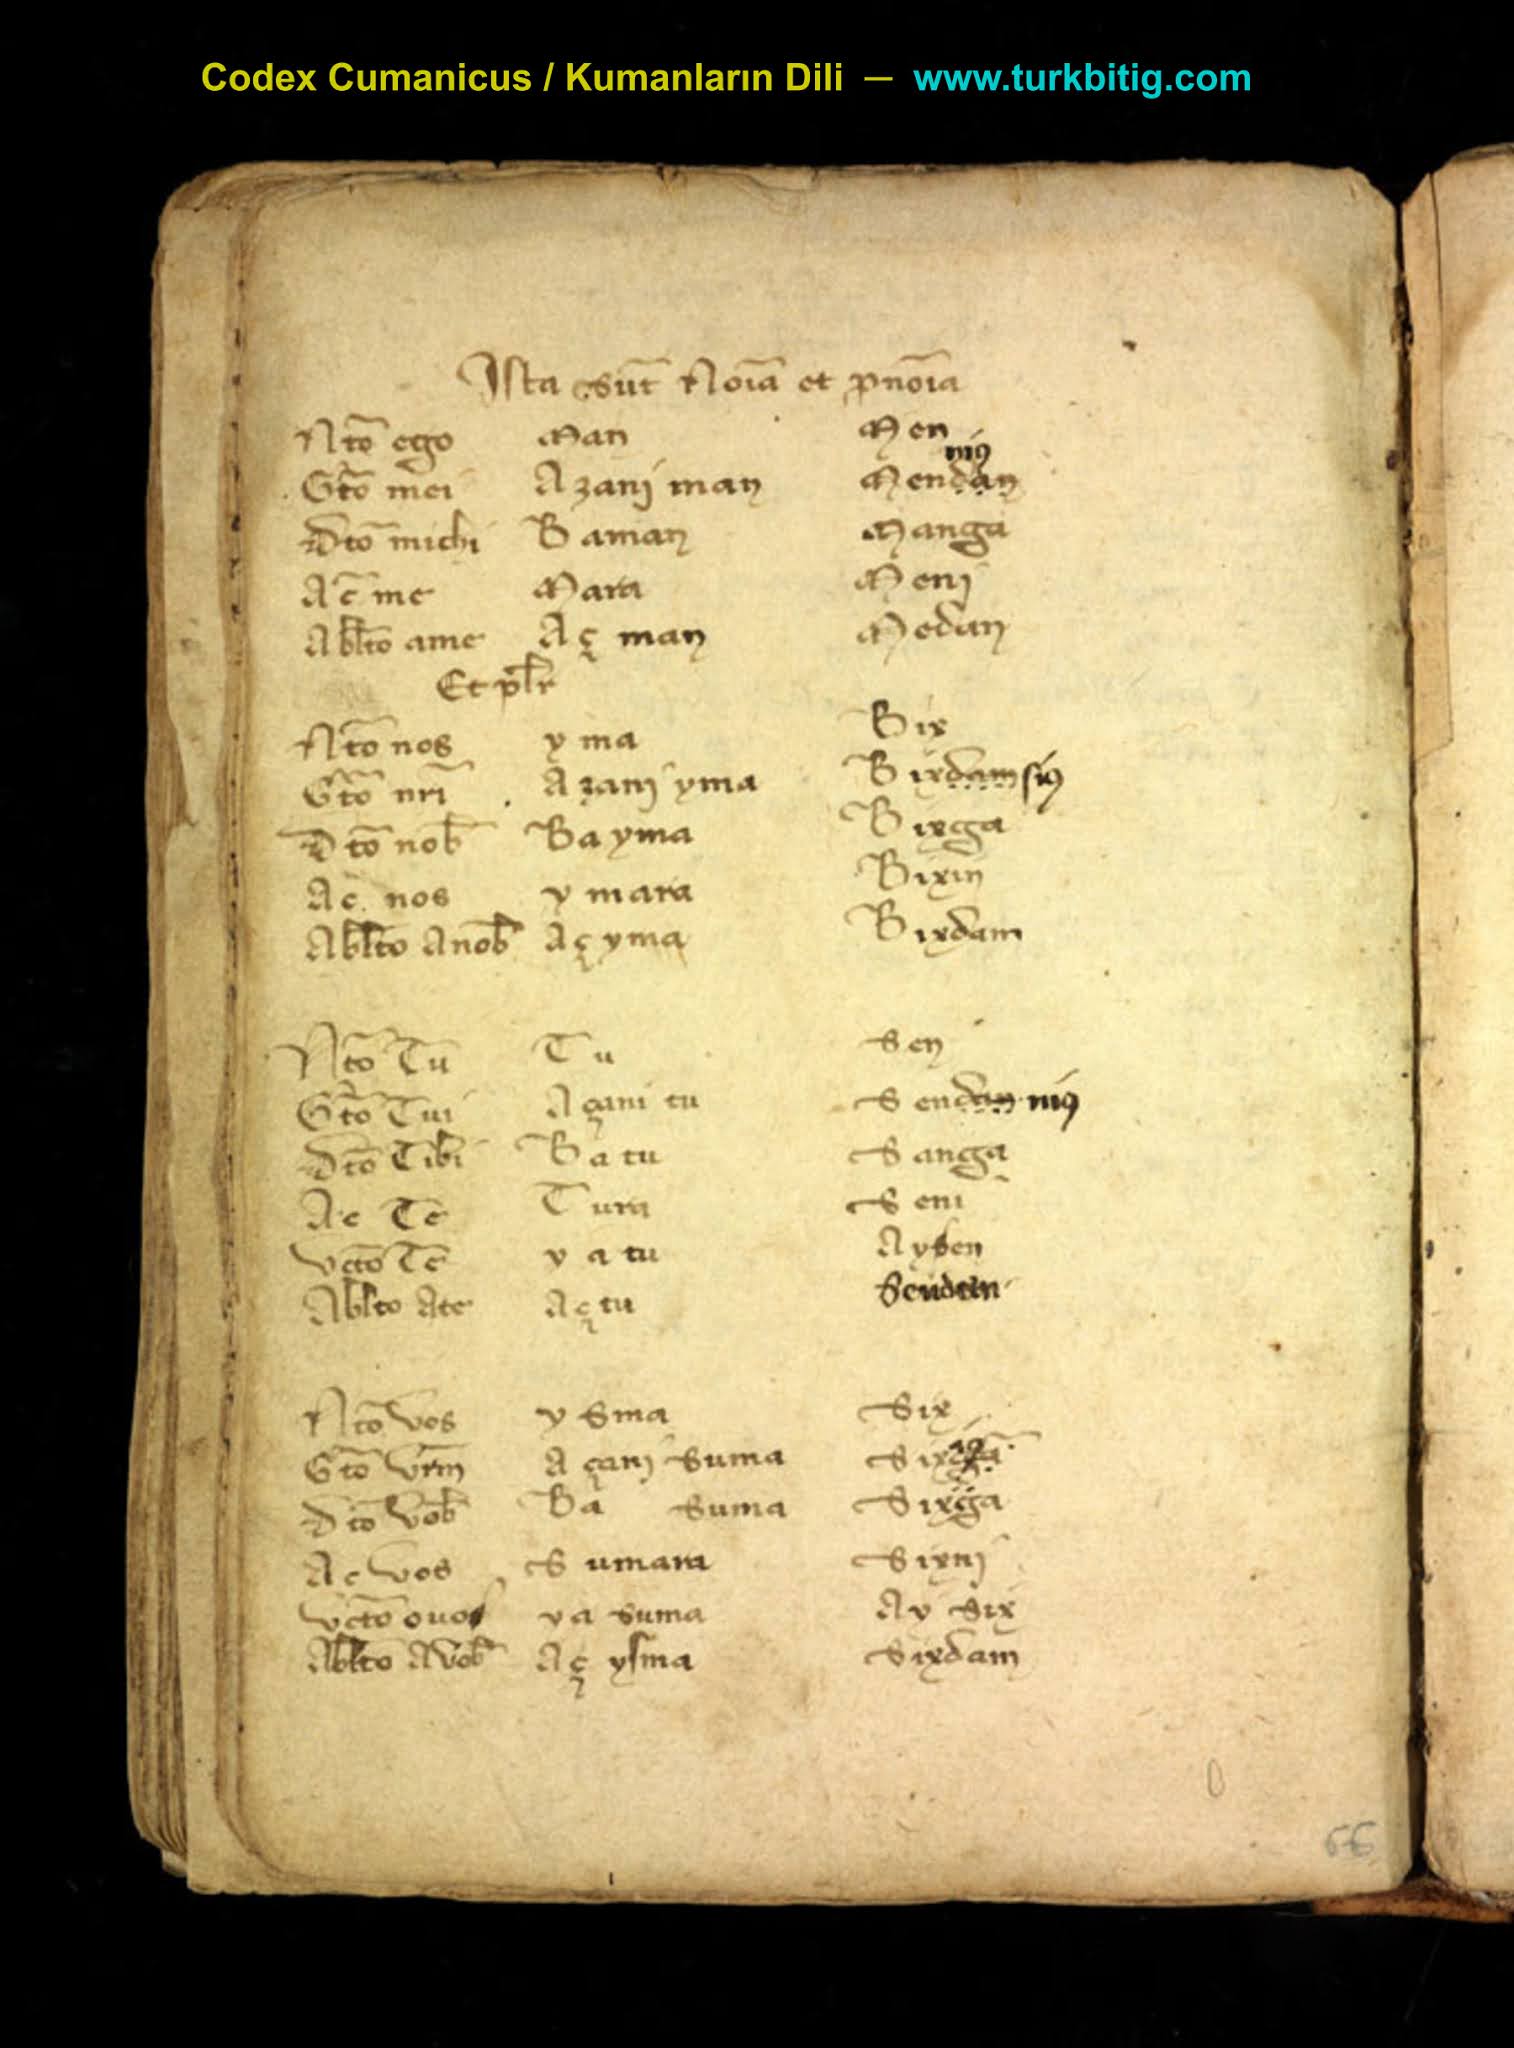 Codex Cumanicus / Kumanların Dili — www.turkbitig.com
Ista sūt Noīa et ꝓnoīa
Ntō ego Man Men
Gtō mei Azanj man Mendan niɉ
Dtō michi Baman Manga
Ac̄ me Mara Menj
Abltō ame Aç man Medan
Et plr
Ntō nos y ma Bix
Gtō nrī Azanj yma Bixdam siɉ
Dtō nob Ba yma Bixga
Ac nos y mara Bixin
Abltō Anob Aç yma Bixdam
Ntō Tu Tu Sen
Gtō Tui Açani tu Sendan niɉ
Dtō Tibi Ba tu Sanga
Ac Te Tura Seni
vctō Te v a tu Aysen
Ablto Ate Aç tu Sendan
Ntō vos y sma Six
Gtō vrm Açanj suma
Dtō vob Ba suma Sixga
Ac vos Sumara Sixnj
vctō ouos va suma Ay Six
Abltō Avob Aç ysma Sixdam
66